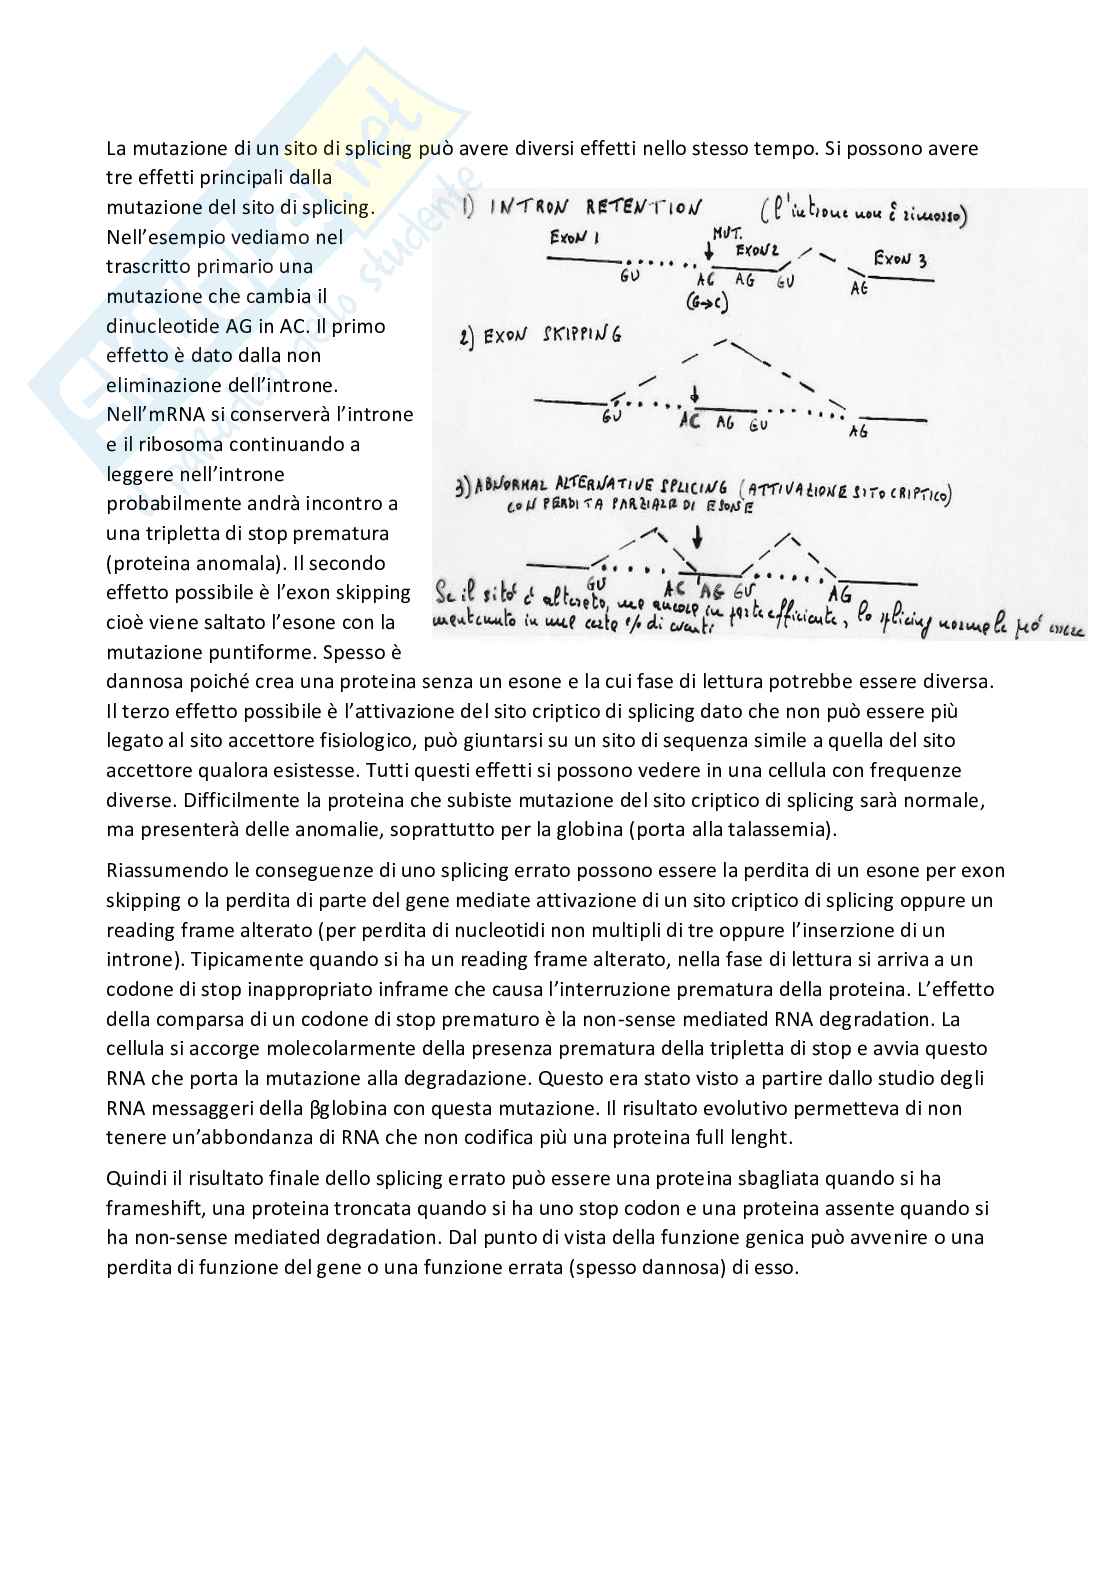 La mutazione di un sito di splicing può avere diversi effetti nello stesso tempo. Si possono avere
tre effetti principali dalla
mutazione del sito di splicing.
Nell'esempio vediamo nel
trascritto primario una
mutazione che cambia il
dinucleotide AG in AC. Il primo
effetto è dato dalla non
eliminazione dell'introne.
Nell'mRNA si conserverà l'introne
e il ribosoma continuando a
leggere nell'introne
probabilmente andrà incontro a
una tripletta di stop prematura
(proteina anomala). Il secondo
effetto possibile è l'exon skipping
cioè viene saltato l'esone con la
mutazione puntiforme. Spesso è
1) INTRON RETENTION (l'introne non è rimosso)
MUT.
EXON 1 EXON2 EXON 3
GU AC AG GU AG
(G→C)
2) EXON SKIPPING
GU AC AG GU AG
3) ABNORMAL ALTERNATIVE SPLICING (ATTIVAZIONE SITO CRIPTICO)
CON PERDITA PARZIALE DI ESONE
GU AC AG GU AG
Se il sito è alterato, ma ancora in parte efficiente, lo splicing normale può essere
mantenuto in una certa % di eventi
dannosa poiché crea una proteina senza un esone e la cui fase di lettura potrebbe essere diversa.
Il terzo effetto possibile è l'attivazione del sito criptico di splicing dato che non può essere più
legato al sito accettore fisiologico, può giuntarsi su un sito di sequenza simile a quella del sito
accettore qualora esistesse. Tutti questi effetti si possono vedere in una cellula con frequenze
diverse. Difficilmente la proteina che subiste mutazione del sito criptico di splicing sarà normale,
ma presenterà delle anomalie, soprattutto per la globina (porta alla talassemia).
Riassumendo le conseguenze di uno splicing errato possono essere la perdita di un esone per exon
skipping o la perdita di parte del gene mediate attivazione di un sito criptico di splicing oppure un
reading frame alterato (per perdita di nucleotidi non multipli di tre oppure l'inserzione di un
introne). Tipicamente quando si ha un reading frame alterato, nella fase di lettura si arriva a un
codone di stop inappropriato inframe che causa l'interruzione prematura della proteina. L'effetto
della comparsa di un codone di stop prematuro è la non-sense mediated RNA degradation. La
cellula si accorge molecolarmente della presenza prematura della tripletta di stop e avvia questo
RNA che porta la mutazione alla degradazione. Questo era stato visto a partire dallo studio degli
RNA messaggeri della βglobina con questa mutazione. Il risultato evolutivo permetteva di non
tenere un'abbondanza di RNA che non codifica più una proteina full lenght.
Quindi il risultato finale dello splicing errato può essere una proteina sbagliata quando si ha
frameshift, una proteina troncata quando si ha uno stop codon e una proteina assente quando si
ha non-sense mediated degradation. Dal punto di vista della funzione genica può avvenire o una
perdita di funzione del gene o una funzione errata (spesso dannosa) di esso.